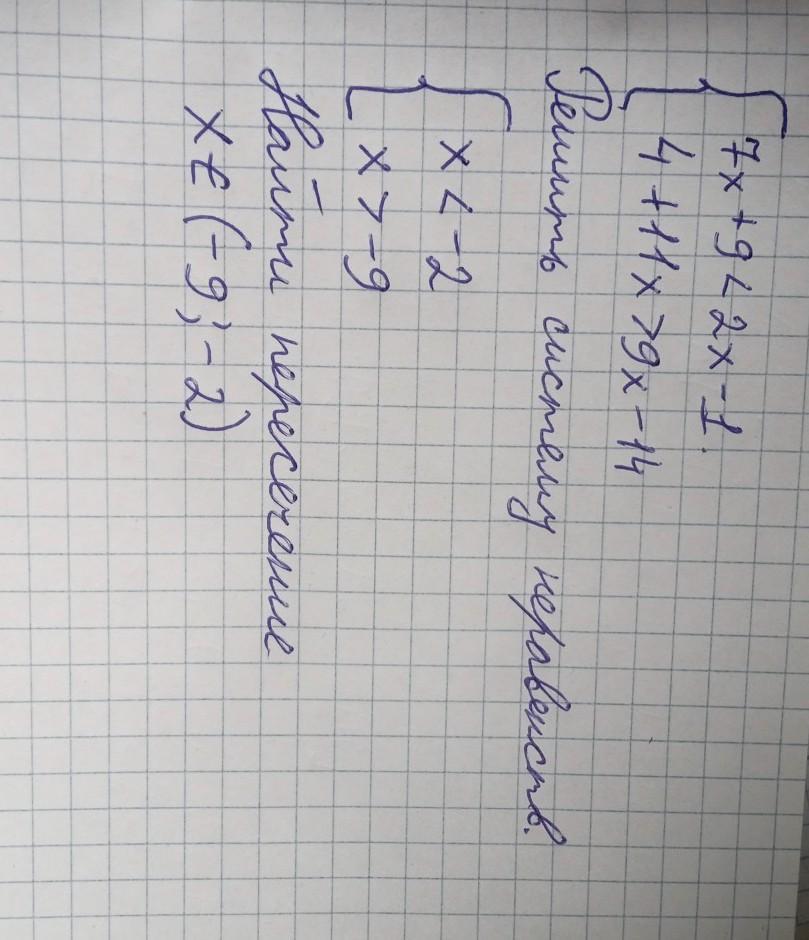 7x+9<2x-1
4+11x>9x-14
Решить систему неравенств.
x<-2
x>-9
Найти пересечение
x∈(-9;-2)